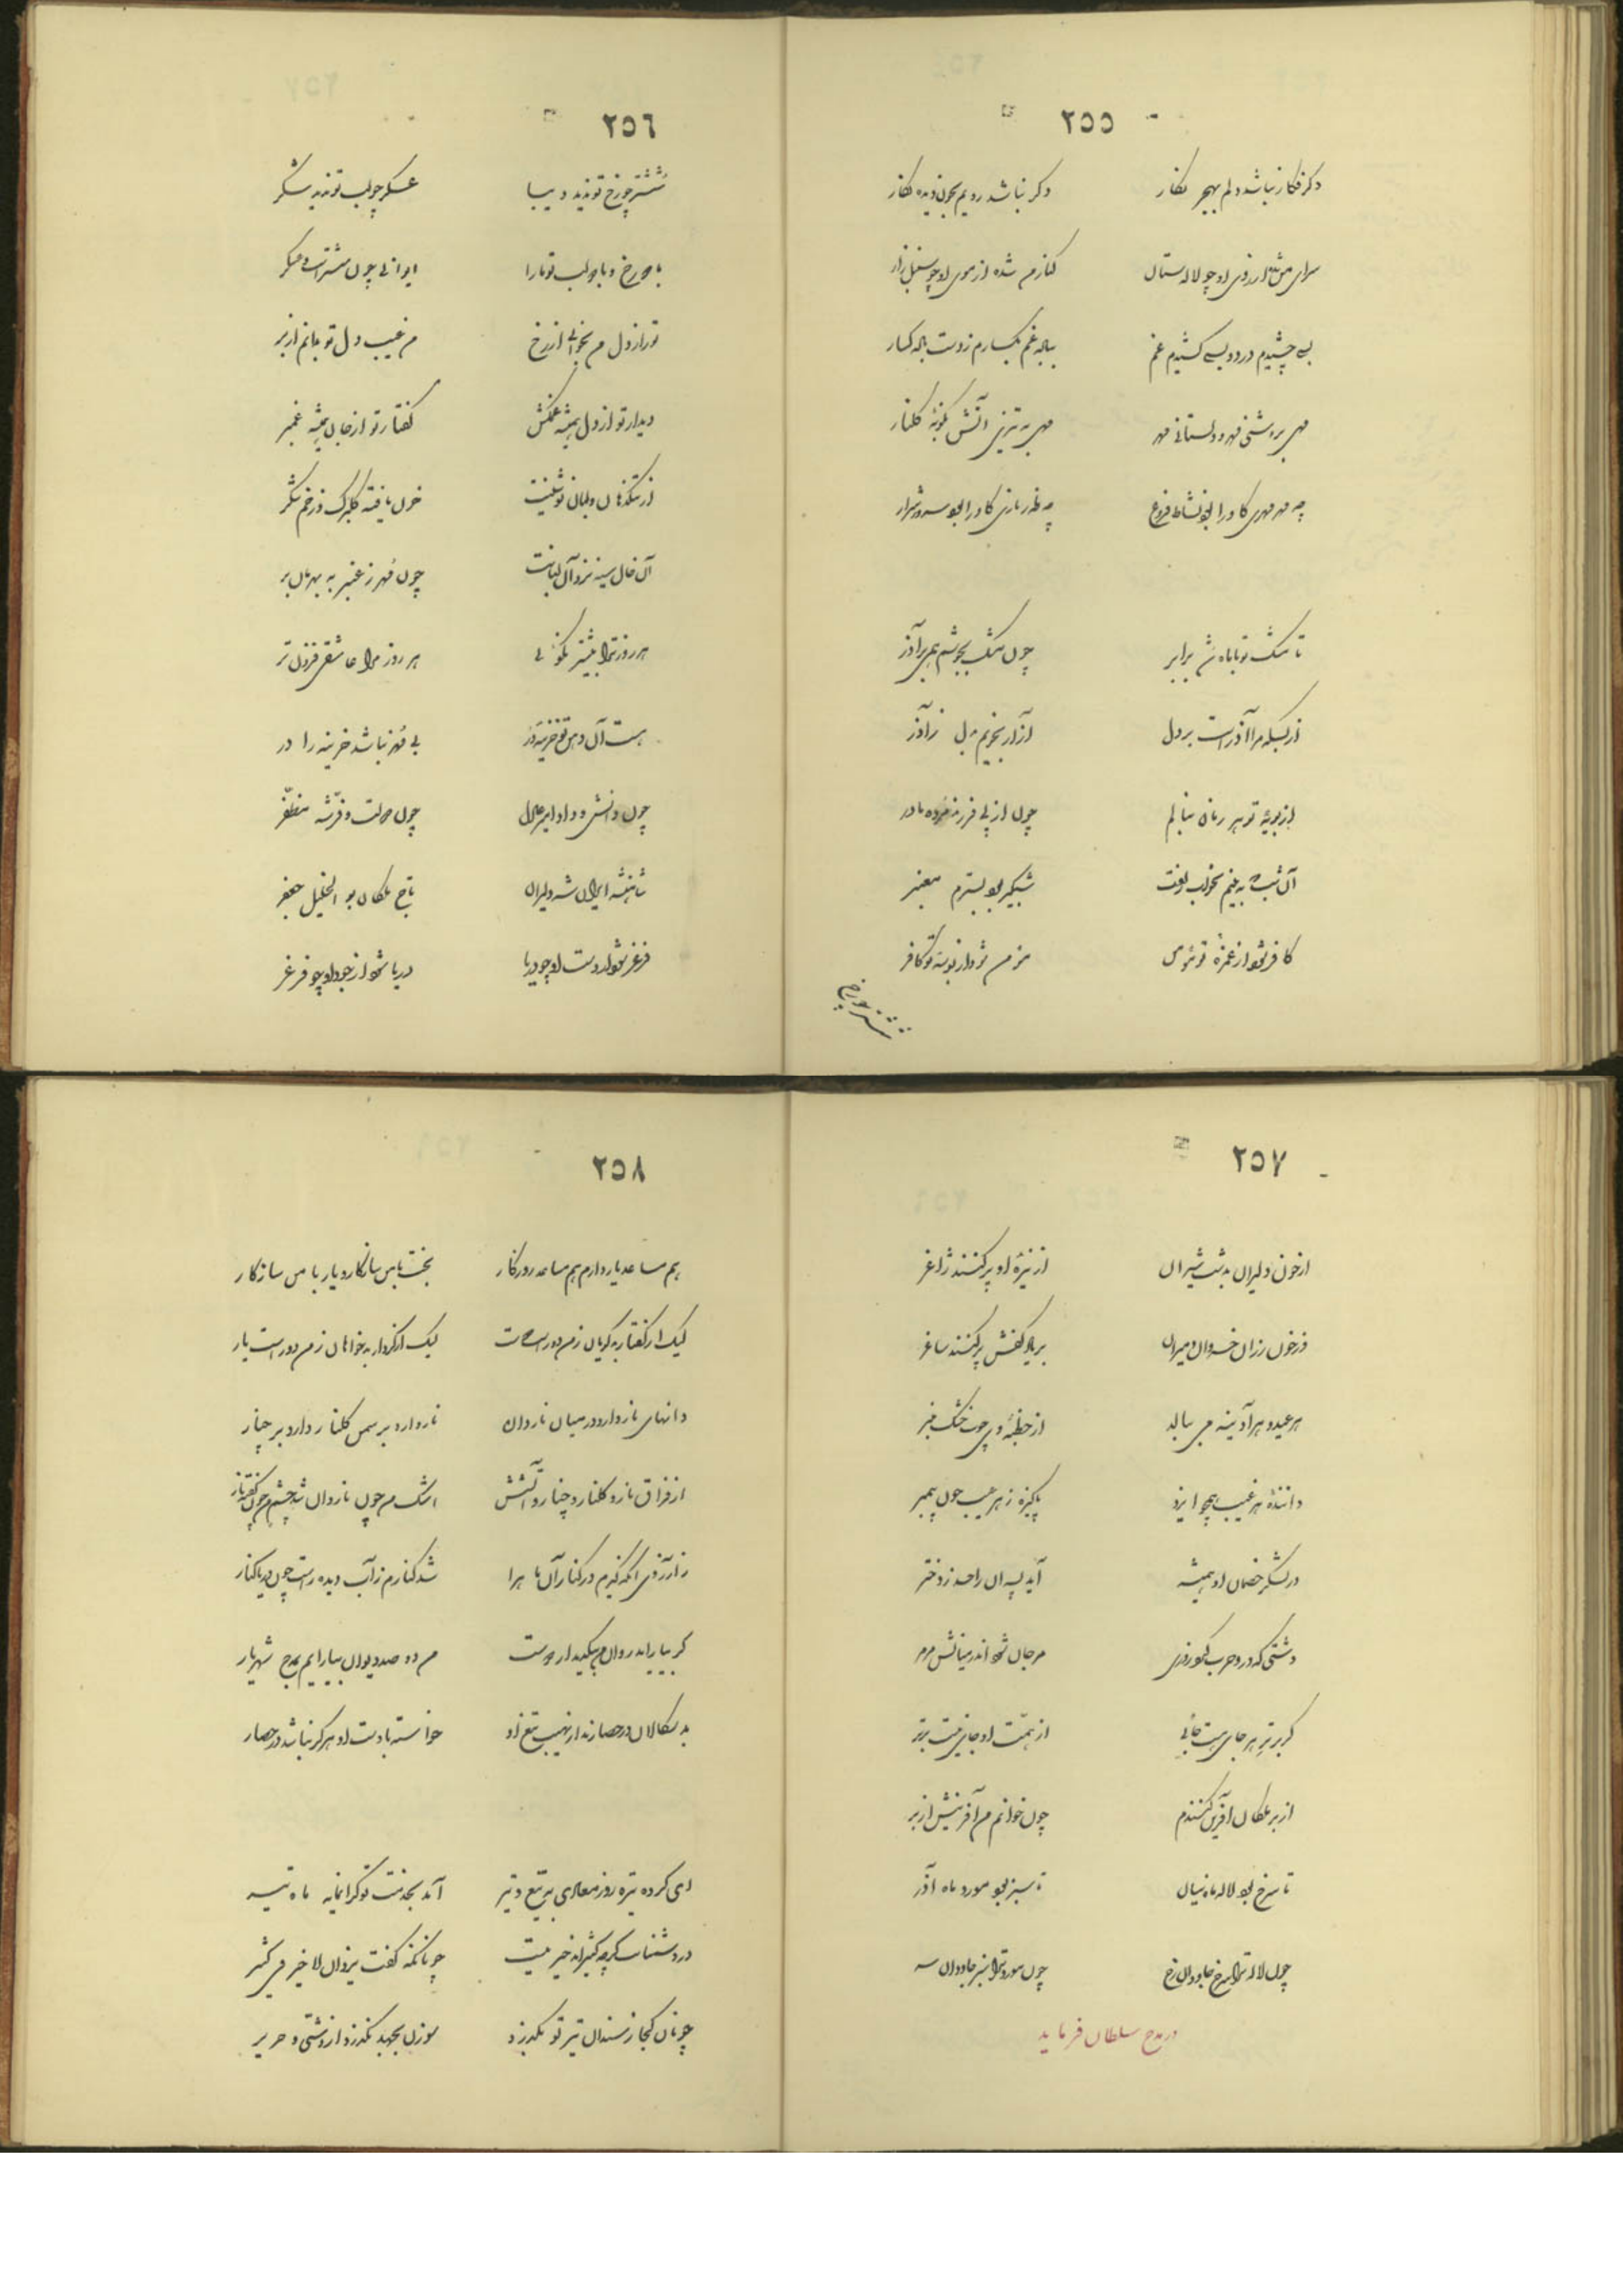 ٢٥٥
دگر فکار نباشد دلم بهجر نگار
دگر نباشد رویم بخون دیده نگار
سرای من شد از روی او چو لاله ستان
کنار من شده از موی او چو سنبل زار
بسی چشیدم درد و بسی کشیدم غم
مهی بروشنی مهر و دلستانی مهر
مهی به تیزی آتش بگونهٔ گلنار
تا مشک تو با ماه شد برابر
چون مشک بجوشم همی بر آذر
از بسکه مرا آذر است بر دل
آزار نجویم بدل ز آذر
از مویهٔ تو هر زمان بنالم
چون از پی فرزند مرده مادر
آن شب که به بینم بخواب زلفت
شبگیر بود بسترم معنبر
کافر شود از غمزهٔ تو مؤمن
مؤمن شود از بوسهٔ تو کافر
ششتر چو رخ
٢٥٦
ششتر چو رخ تو ندید دیبا
عسکر چو لب تو ندید شکر
با دو رخ و با دو لب تو ما را
ایوانی چون ششتر است و عسکر
تو راز دل من بخوانی از رخ
من غیب دل تو بدانم از بر
دیدار تو از دل همیشه غمکش
گفتار تو از جان همیشه غمبر
خون یافته گلبرگ و زخم شکر
آن خال سیه نزد آن لبانت
چون مهر ز عنبر به بهرمان بر
هر روز ترا بیشتر نکوئی
هر روز مرا عاشقی فزون تر
هست آن دهن تو خزینه در
بی مهر نباشد خزینه را در
چون دانش و داد امیر عادل
چون دولت و فر شه مظفر
شاهنشه ایران شه دلیران
تاج ملکان بو الخلیل جعفر
فرغر شود از دست او چو دریا
دریا شود از جود او چو فرغر
٢٥٧
از خون دلیران بدشت شیران
از نیزهٔ او پر کنند ژاغر
وز خون رزان خسروان و میران
بر یاد کفش پر کنند ساغر
هر عید و هر آدینه می ببالد
از خطبهٔ وی چوب خشک منبر
دانندهٔ هر غیب همچو ایزد
پاکیزه ز هر عیب چون پیمبر
در لشکر خصمان او همیشه
آید پسران را حسد ز دختر
دشتی که درو حرب کرد روزی
مرجان شود اندر میانش مرمر
گر برتر هر جای هست جائی
از همّت او جای نیست برتر
از بر ملکان آفرین کنندم
چون خوانم من آفرینش از بر
تا سرخ بود لاله ماه نیسان
تا سبز بود مورد ماه آذر
چون لاله ترا سرخ جاودان رخ
چون مورد ترا سبز جاودان سر
در مدح سلطان فرماید
٢٥٨
هم مساعد یار دارم هم مساعد روزگار
بخت با من سازگار و یار با من سازگار
لیک از گفتار بدگویان ز من دور است دوست
لیک از کردار بدخواهان ز من دور است یار
دانهای نار دارد در میان ناردان
نار دارد بر سمن گلنار دارد بر چنار
از فراق نار و گلنار و چنار و آتشش
اشک من چون ناردان شد چشم من چون کفته نار
ز آرزوی آنکه گیرم در کنار آن ماه را
شد کنارم ز آب دیده راست چون دریا کنار
گر بیاراید روان من بیکدیدار دوست
من دو صد دیوان بیارایم بمدح شهریار
بدسگالان در حصارند از نهیب تیغ او
خواسته با دست او هرگز نباشد در حصار
ای کرده تیره روز معادی به تیغ و تیر
آید بخدمت تو گرانمایه ماه تیر
در دشمنانت گرچه کثیرند خیر نیست
چونانکه گفت یزدان لا خیر فی کثیر
چونان کجا ز سندان تیر تو بگذرد
سوزن بجهد نگذرد از وشی و حریر